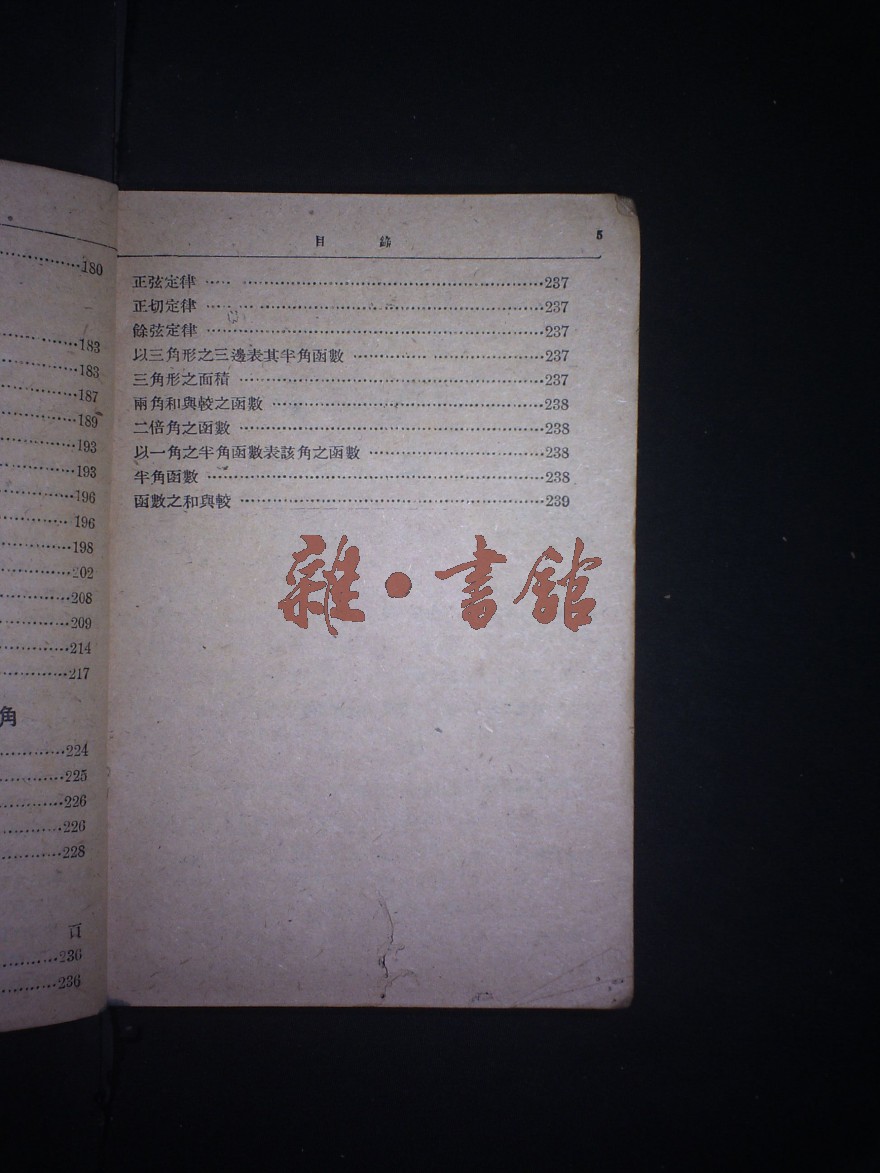 180
183
183
187
189
193
193
196
196
198
202
208
209
214
217
角
224
225
226
226
228
頁
236
236
目 錄 5
正弦定律 237
正切定律 237
餘弦定律 237
以三角形之三邊表其半角函數 237
三角形之面積 237
兩角和與較之函數 238
二倍角之函數 238
以一角之半角函數表該角之函數 238
半角函數 238
函數之和與較 239
雜·書館